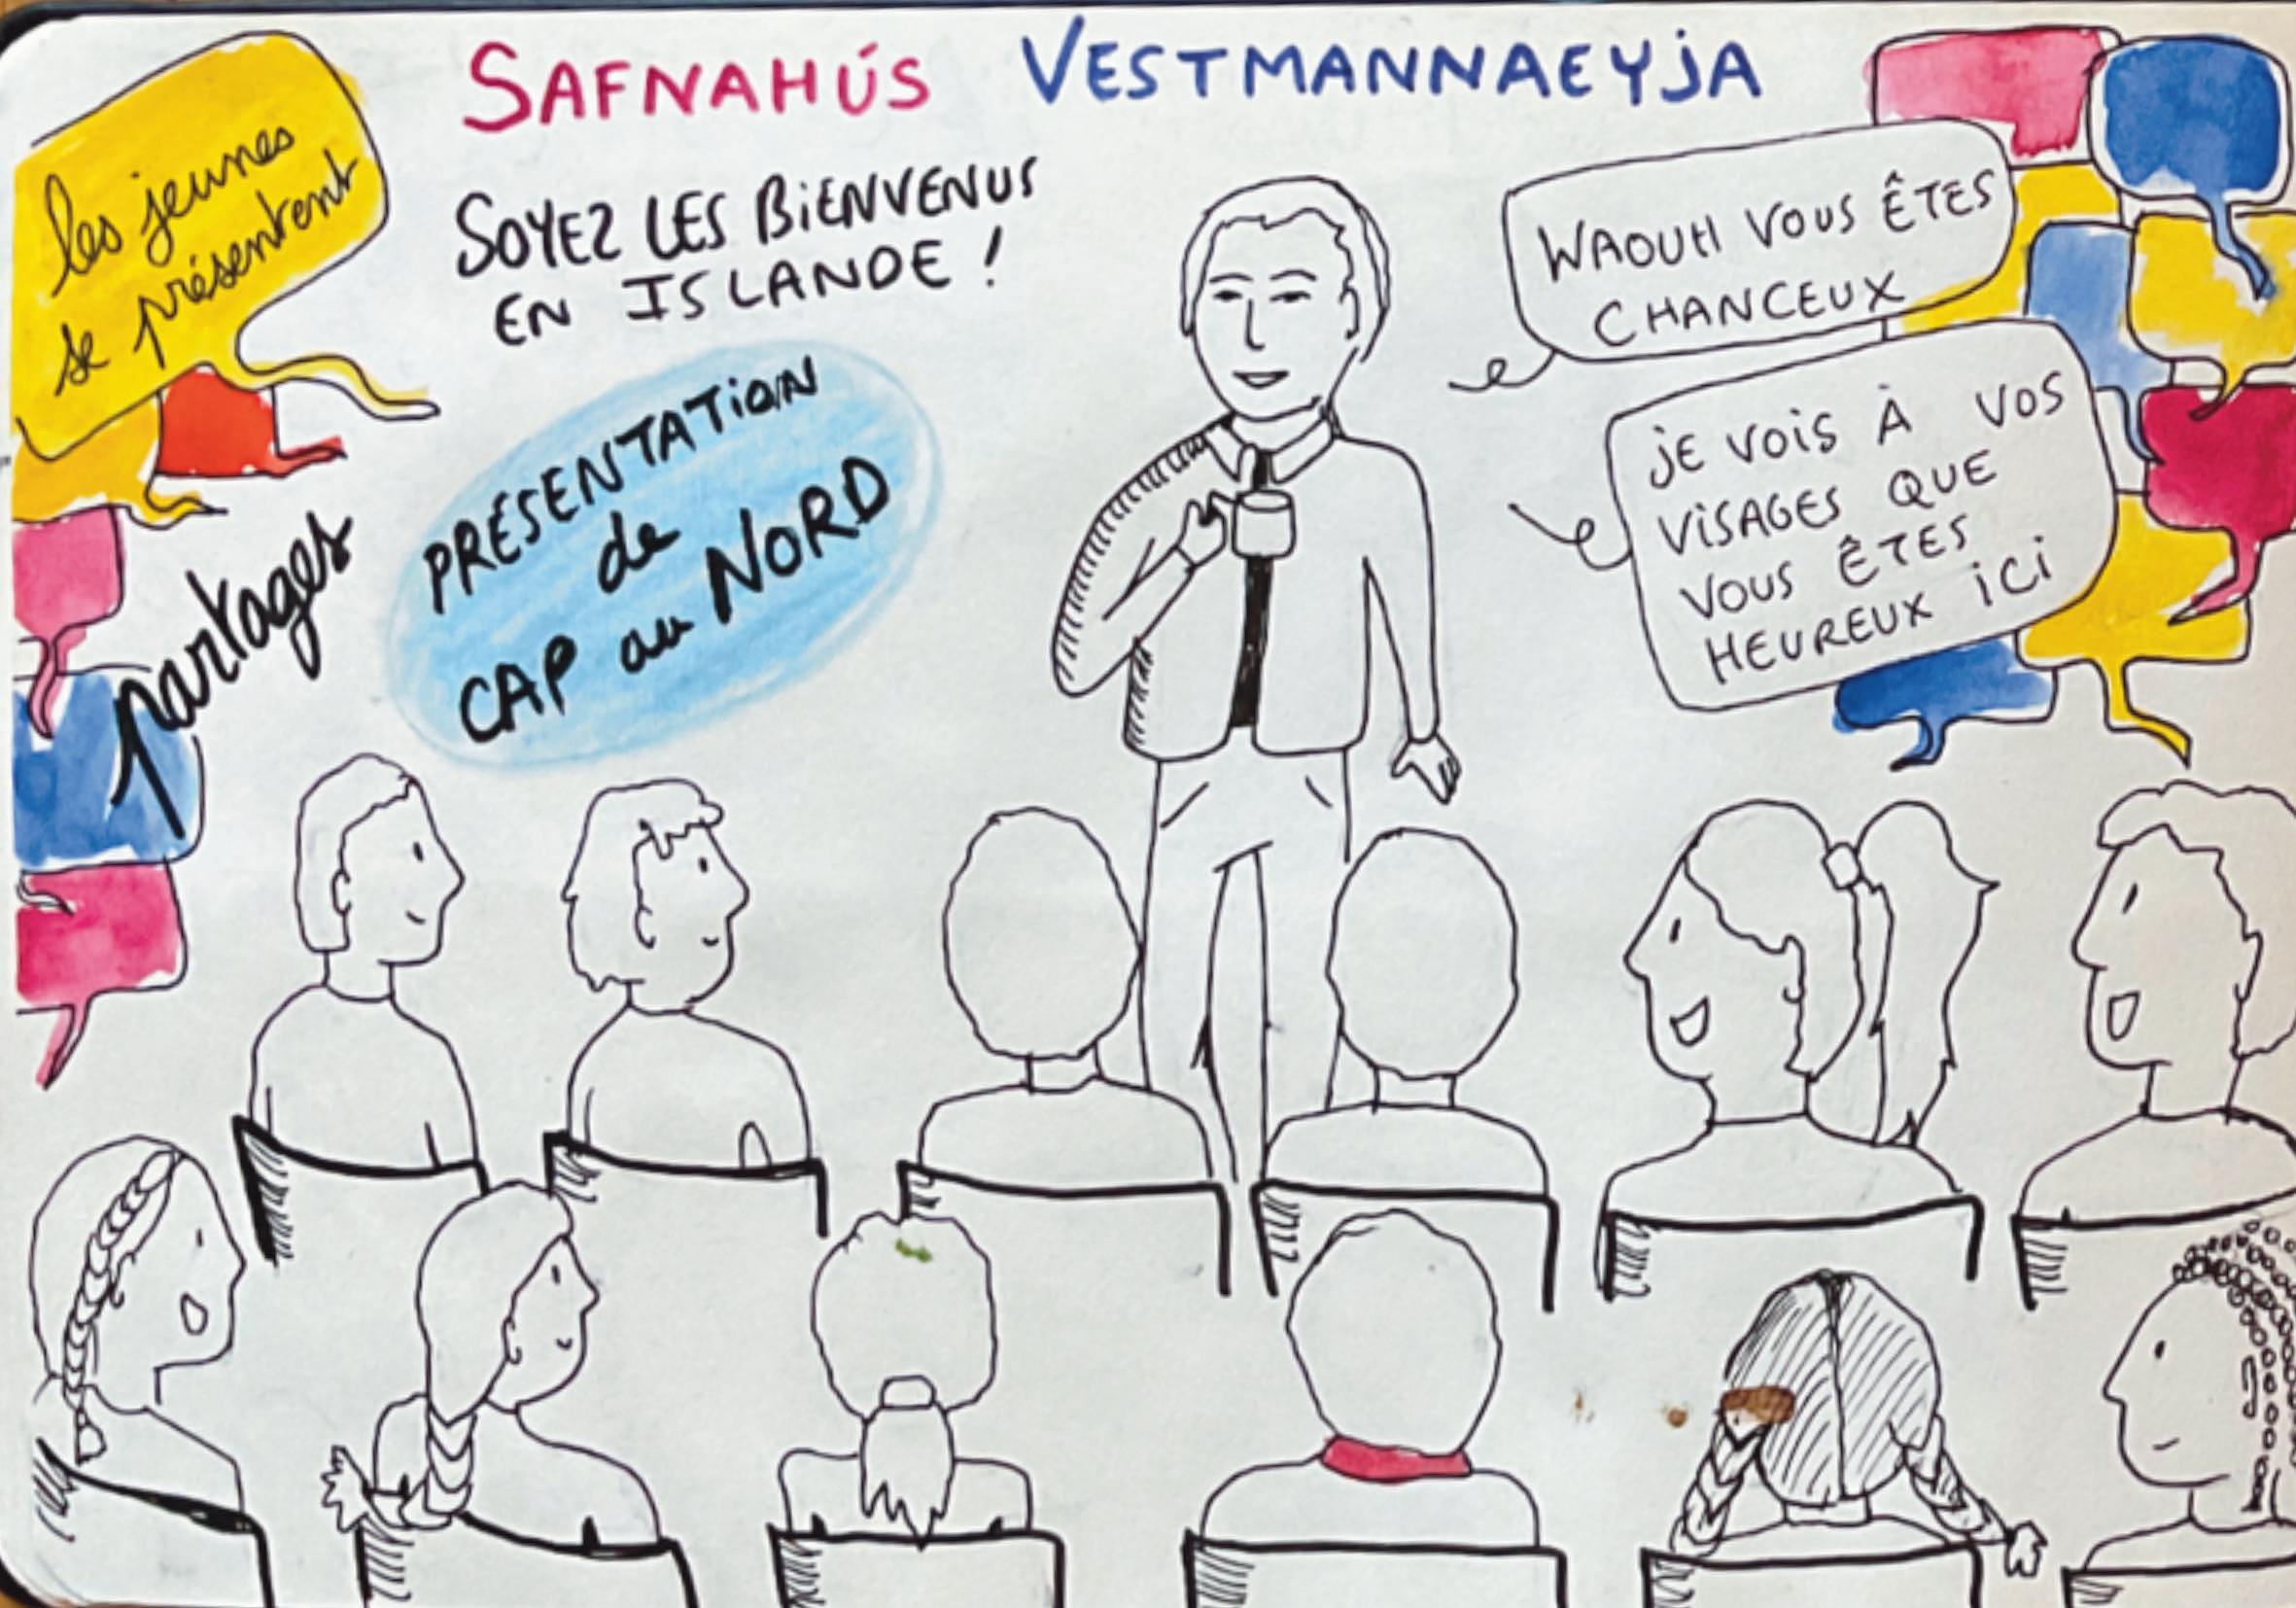 SAFNAHÚS VESTMANNAEYJA
les jeunes
se présentent
SOYEZ LES BIENVENUS
EN ISLANDE !
PRÉSENTATION
de
CAP au NORD
partages
WAOUH VOUS ÊTES
CHANCEUX
JE VOIS À VOS
VISAGES QUE
VOUS ÊTES
HEUREUX ICI